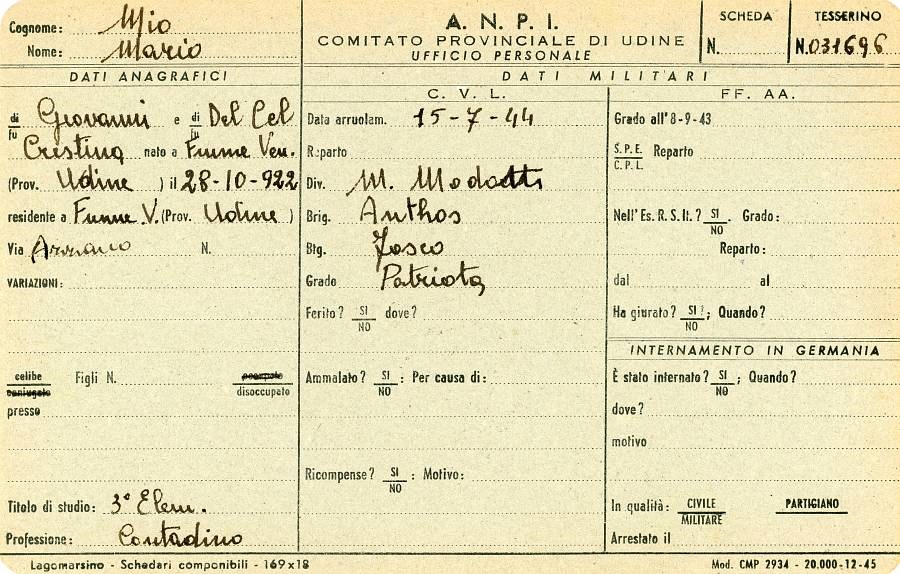 Cognome: Mio
Nome: Mario
A. N. P. I.
COMITATO PROVINCIALE DI UDINE
UFFICIO PERSONALE
SCHEDA
N.
TESSERINO
N. 031696
DATI ANAGRAFICI
di
fu Giovanni e di
fu Del Cel
Cristina nato a Fiume Ven.
(Prov. Udine ) il 28-10-922
residente a Fiume V. (Prov. Udine )
Via N.
VARIAZIONI:
celibe
coniugato Figli N. occupato
disoccupato
presso
Titolo di studio: 3ª Elem.
Professione: Contadino
DATI MILITARI
C. V. L.
Data arruolam. 15-7-44
Reparto
Div. M. Modotti
Brig. Anthos
Btg. Zosco
Grado Patriota
Ferito? SI
NO dove?
Ammalato? SI
NO : Per causa di:
Ricompense? SI
NO : Motivo:
FF. AA.
Grado all' 8-9-43
S.P.E.
C.P.L. Reparto
Nell'Es. R. S. It.? SI
NO . Grado:
Reparto:
dal al
Ha giurato? SI
NO ; Quando?
INTERNAMENTO IN GERMANIA
È stato internato? SI
NO ; Quando?
dove?
motivo
In qualità: CIVILE
MILITARE PARTIGIANO
Arrestato il
Lagomarsino - Schedari componibili - 169x18
Mod. CMP 2934 - 20.000-12-45